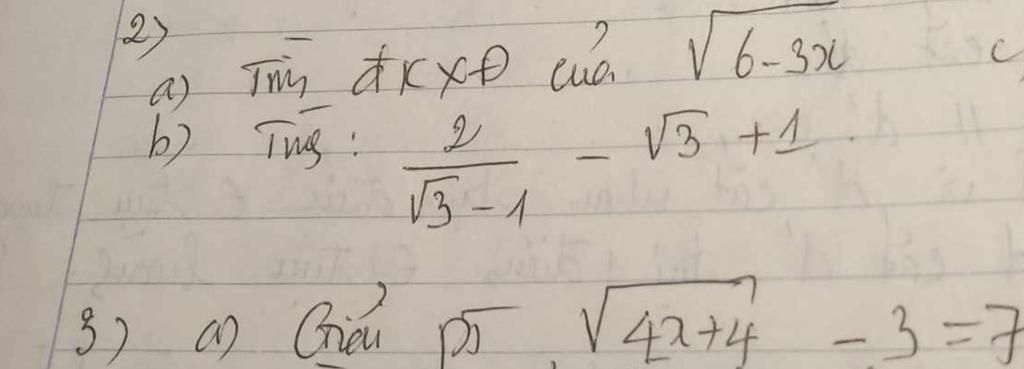 2)
a) Tìm đkxđ của √6-3x c
b) Tính: 2/(√3-1) - √3 + 1.
3) a) Giải pt √4x+4 - 3 = 7